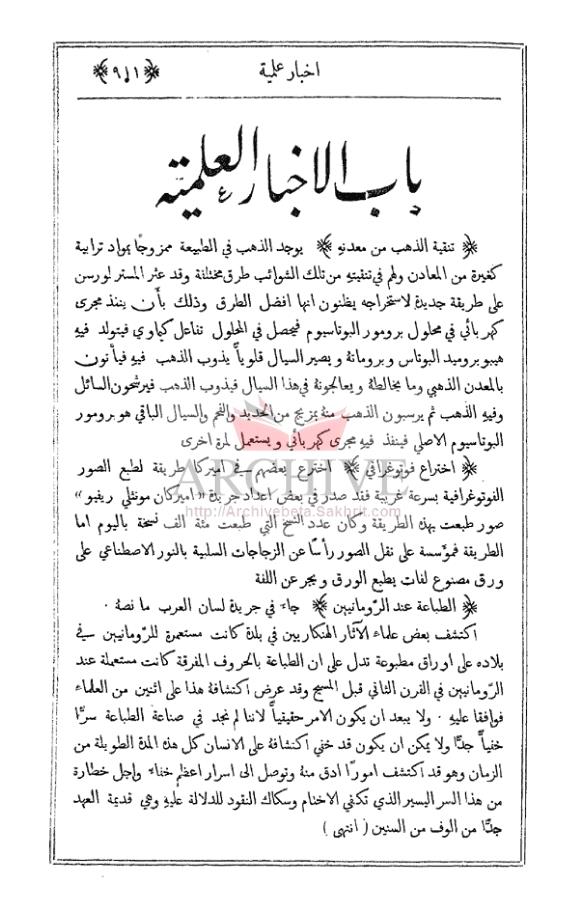 اخبار علمية
باب الاخبار العلمية
﴿ تنقية الذهب من معدنه ﴾ يوجد الذهب في الطبيعة ممزوجًا بمواد ترابية
كغيره من المعادن ولهم في تنقيته من تلك الشوائب طرق مختلفة وقد عثر المستر لورسن
على طريقة جديدة لاستخراجه يظنون انها افضل الطرق وذلك بأن ينفذ مجرى
كهربائي في محلول برومور البوتاسيوم فيحصل في المحلول تفاعل كيماوي فيتولد فيه
هيبوبروميد البوتاس وبروماته ويصير السيال قلوياً يذوب الذهب فيه فيأتون
بالمعدن الذهبي وما يخالطه ويعالجونه في هذا السيال فيذوب الذهب فيرشحون السائل
وفيه الذهب ثم يرسبون الذهب منه بمزيج من الحديد والفحم والسيال الباقي هو برومور
البوتاسيوم الاصلي فينفذ فيه مجرى كهربائي ويستعمل لمرة اخرى
﴿ اختراع فوتوغرافي ﴾ اخترع بعضهم في اميركا طريقة لطبع الصور
الفوتوغرافية بسرعة غريبة فقد صدر في بعض اعداد جريدة «اميركان مونثلي ريفيو»
صور طبعت بهذه الطريقة وكان عدد النسخ التي طبعت مئة الف نسخة باليوم اما
الطريقة فمؤسسة على نقل الصور رأسًا عن الزجاجات السلبية بالنور الاصطناعي على
ورق مصنوع لفات يطبع الورق ويجر عن اللفة
﴿ الطباعة عند الرّومانيين ﴾ جاء في جريدة لسان العرب ما نصه .
اكتشف بعض علماء الآثار الهنكاريين في بلدة كانت مستعمرة للرّومانيين في
بلاده على اوراق مطبوعة تدل على ان الطباعة بالحروف المفرقة كانت مستعملة عند
الرّومانيين في القرن الثاني قبل المسيح وقد عرض اكتشافه هذا على اثنين من العلماء
فوافقا عليه . ولا يبعد ان يكون الامر حقيقياً لاننا لم نجد في صناعة الطباعة سرًّا
خفياً جدًّا ولا يمكن ان يكون قد خفي اكتشافه على الانسان كل هذه المدة الطويلة من
الزمان وهو قد اكتشف امورًا ادق منه وتوصل الى اسرار اعظم خفاء واجل خطارة
من هذا السر اليسير الذي تكفي الاختام وسكاك النقود للدلالة عليه وهي قديمة العهد
جدًّا من الوف من السنين ( انتهى )
ARCHIVE
http://Archivebeta.Sakhrit.com